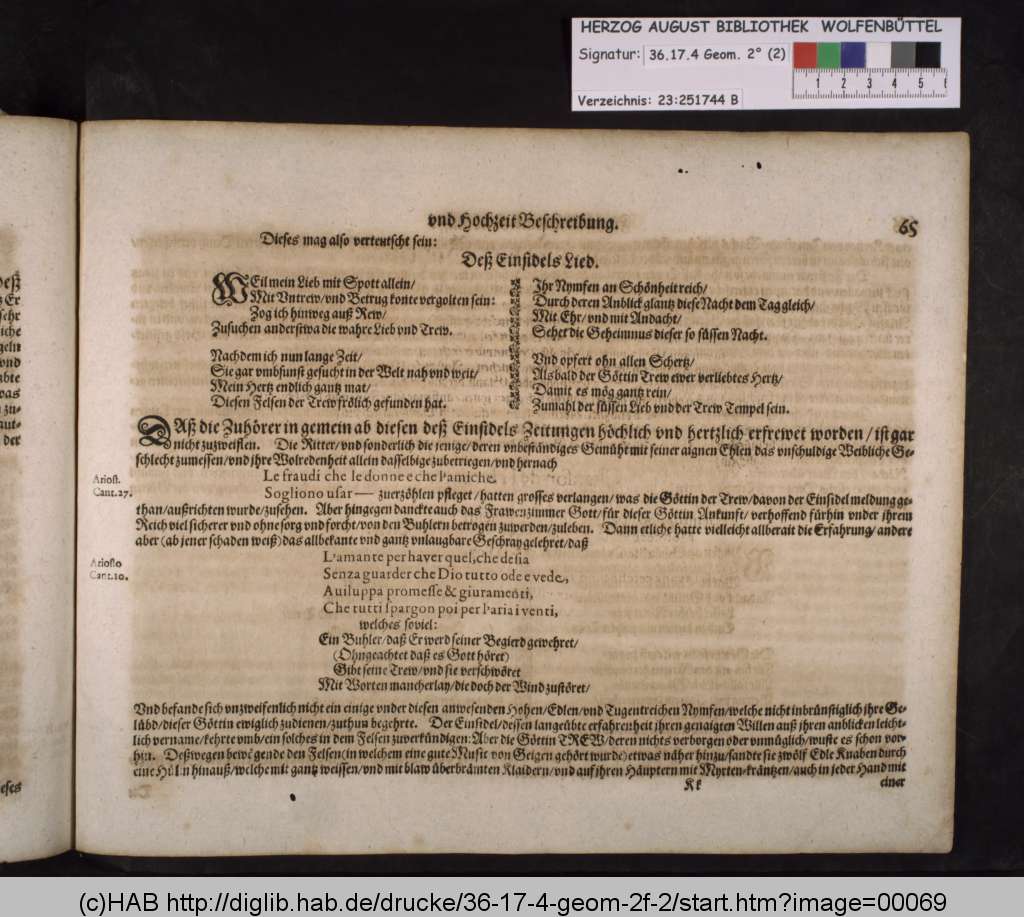 HERZOG AUGUST BIBLIOTHEK WOLFENBÜTTEL
Signatur: 36.17.4 Geom. 2° (2)
Verzeichnis: 23:251744 B
1 2 3 4 5 6
vnd Hochzeit Beschreibung. 65
Dieses mag also verteutscht sein:
Deß Einsidels Lied.
WEil mein Lieb mit Spott allein/
Mit Vntrew/vnd Betrug konte vergolten sein:
Zog ich hinweg auß Rew/
Zusuchen anderstwa die wahre Lieb vnd Trew.
Nachdem ich nun lange Zeit/
Sie gar vmbsunst gesucht in der Welt nah vnd weit/
Mein Hertz endlich gantz mat/
Diesen Felsen der Trew frölich gefunden hat.
Ihr Nymfen an Schönheit reich/
Durch deren Anblick glantz diese Nacht dem Tag gleich/
Mit Ehr/vnd mit Andacht/
Sehet die Geheimnus dieser so süssen Nacht.
Vnd opfert ohn allen Schertz/
Alsbald der Göttin Trew ewer verliebtes Hertz/
Damit es mög gantz rein/
Zumahl der süssen Lieb vnd der Trew Tempel sein.
DAß die Zuhörer in gemein ab diesen deß Einsidels Zeitungen höchlich vnd hertzlich erfrewet worden/ist gar
nicht zuzweiflen. Die Ritter/vnd sonderlich die jenige/deren vnbeständiges Gemüht mit seiner aignen Ehlen das vnschuldige Weibliche Ge-
schlecht zumessen/vnd jhre Wolredenheit allein dasselbige zubetriegen/vnd hernach
Ariost.
Cant.27.
Le fraudi che le donne e che l'amiche
Sogliono usar — zuerzöhlen pfleget/hatten grosses verlangen/was die Göttin der Trew/davon der Einsidel meldung ge-
than/außrichten wurde/zusehen. Aber hingegen danckte auch das Frawenzimmer Gott/für dieser Göttin Ankunft/verhoffend fürhin vnder jhrem
Reich viel sicherer vnd ohne sorg vnd forcht/von den Buhlern betrogen zuwerden/zuleben. Dann etliche hatte vielleicht allberait die Erfahrung/andere
aber (ab jener schaden weiß) das allbekante vnd gantz vnlaugbare Geschray gelehret/daß
Ariosto
Cant.10.
L'amante per haver quel, che desia
Senza guarder che Dio tutto ode e vede,
Auiluppa promesse & giuramenti,
Che tutti spargon poi per l'aria i venti,
welches soviel:
Ein Buhler/daß Er werd seiner Begierd gewehret/
(Ohngeachtet daß es Gott höret)
Gibt seine Trew/vnd sie verschwöret
Mit Worten mancherlay/die doch der Wind zustöret/
Vnd befande sich vnzweifenlich nicht ein einige vnder diesen anwesenden Hohen/Edlen/vnd Tugentreichen Nymfen/welche nicht inbrünstiglich jhre Ge-
lübd/dieser Göttin ewiglich zudienen/zuthun begehrte. Der Einsidel/dessen langeübte erfahrenheit jhren genaigten Willen auß jhren anblicken leicht-
lich vername/kehrte vmb/ein solches in dem Felsen zuverkündigen: Aber die Göttin TREW/deren nichts verborgen oder vnmüglich/wuste es schon vor-
hin. Deßwegen bewegende den Felsen (in welchem eine gute Music von Geigen gehört wurde) etwas näher hinzu/sandte sie zwölf Edle Knaben durch
eine Hüln hinauß/welche mit gantz weissen/vnd mit blaw überbrämten Klaidern/vnd auf ihren Häuptern mit Myrten-kräntzen/auch in jeder Hand mit
Kk einer
(c)HAB http://diglib.hab.de/drucke/36-17-4-geom-2f-2/start.htm?image=00069